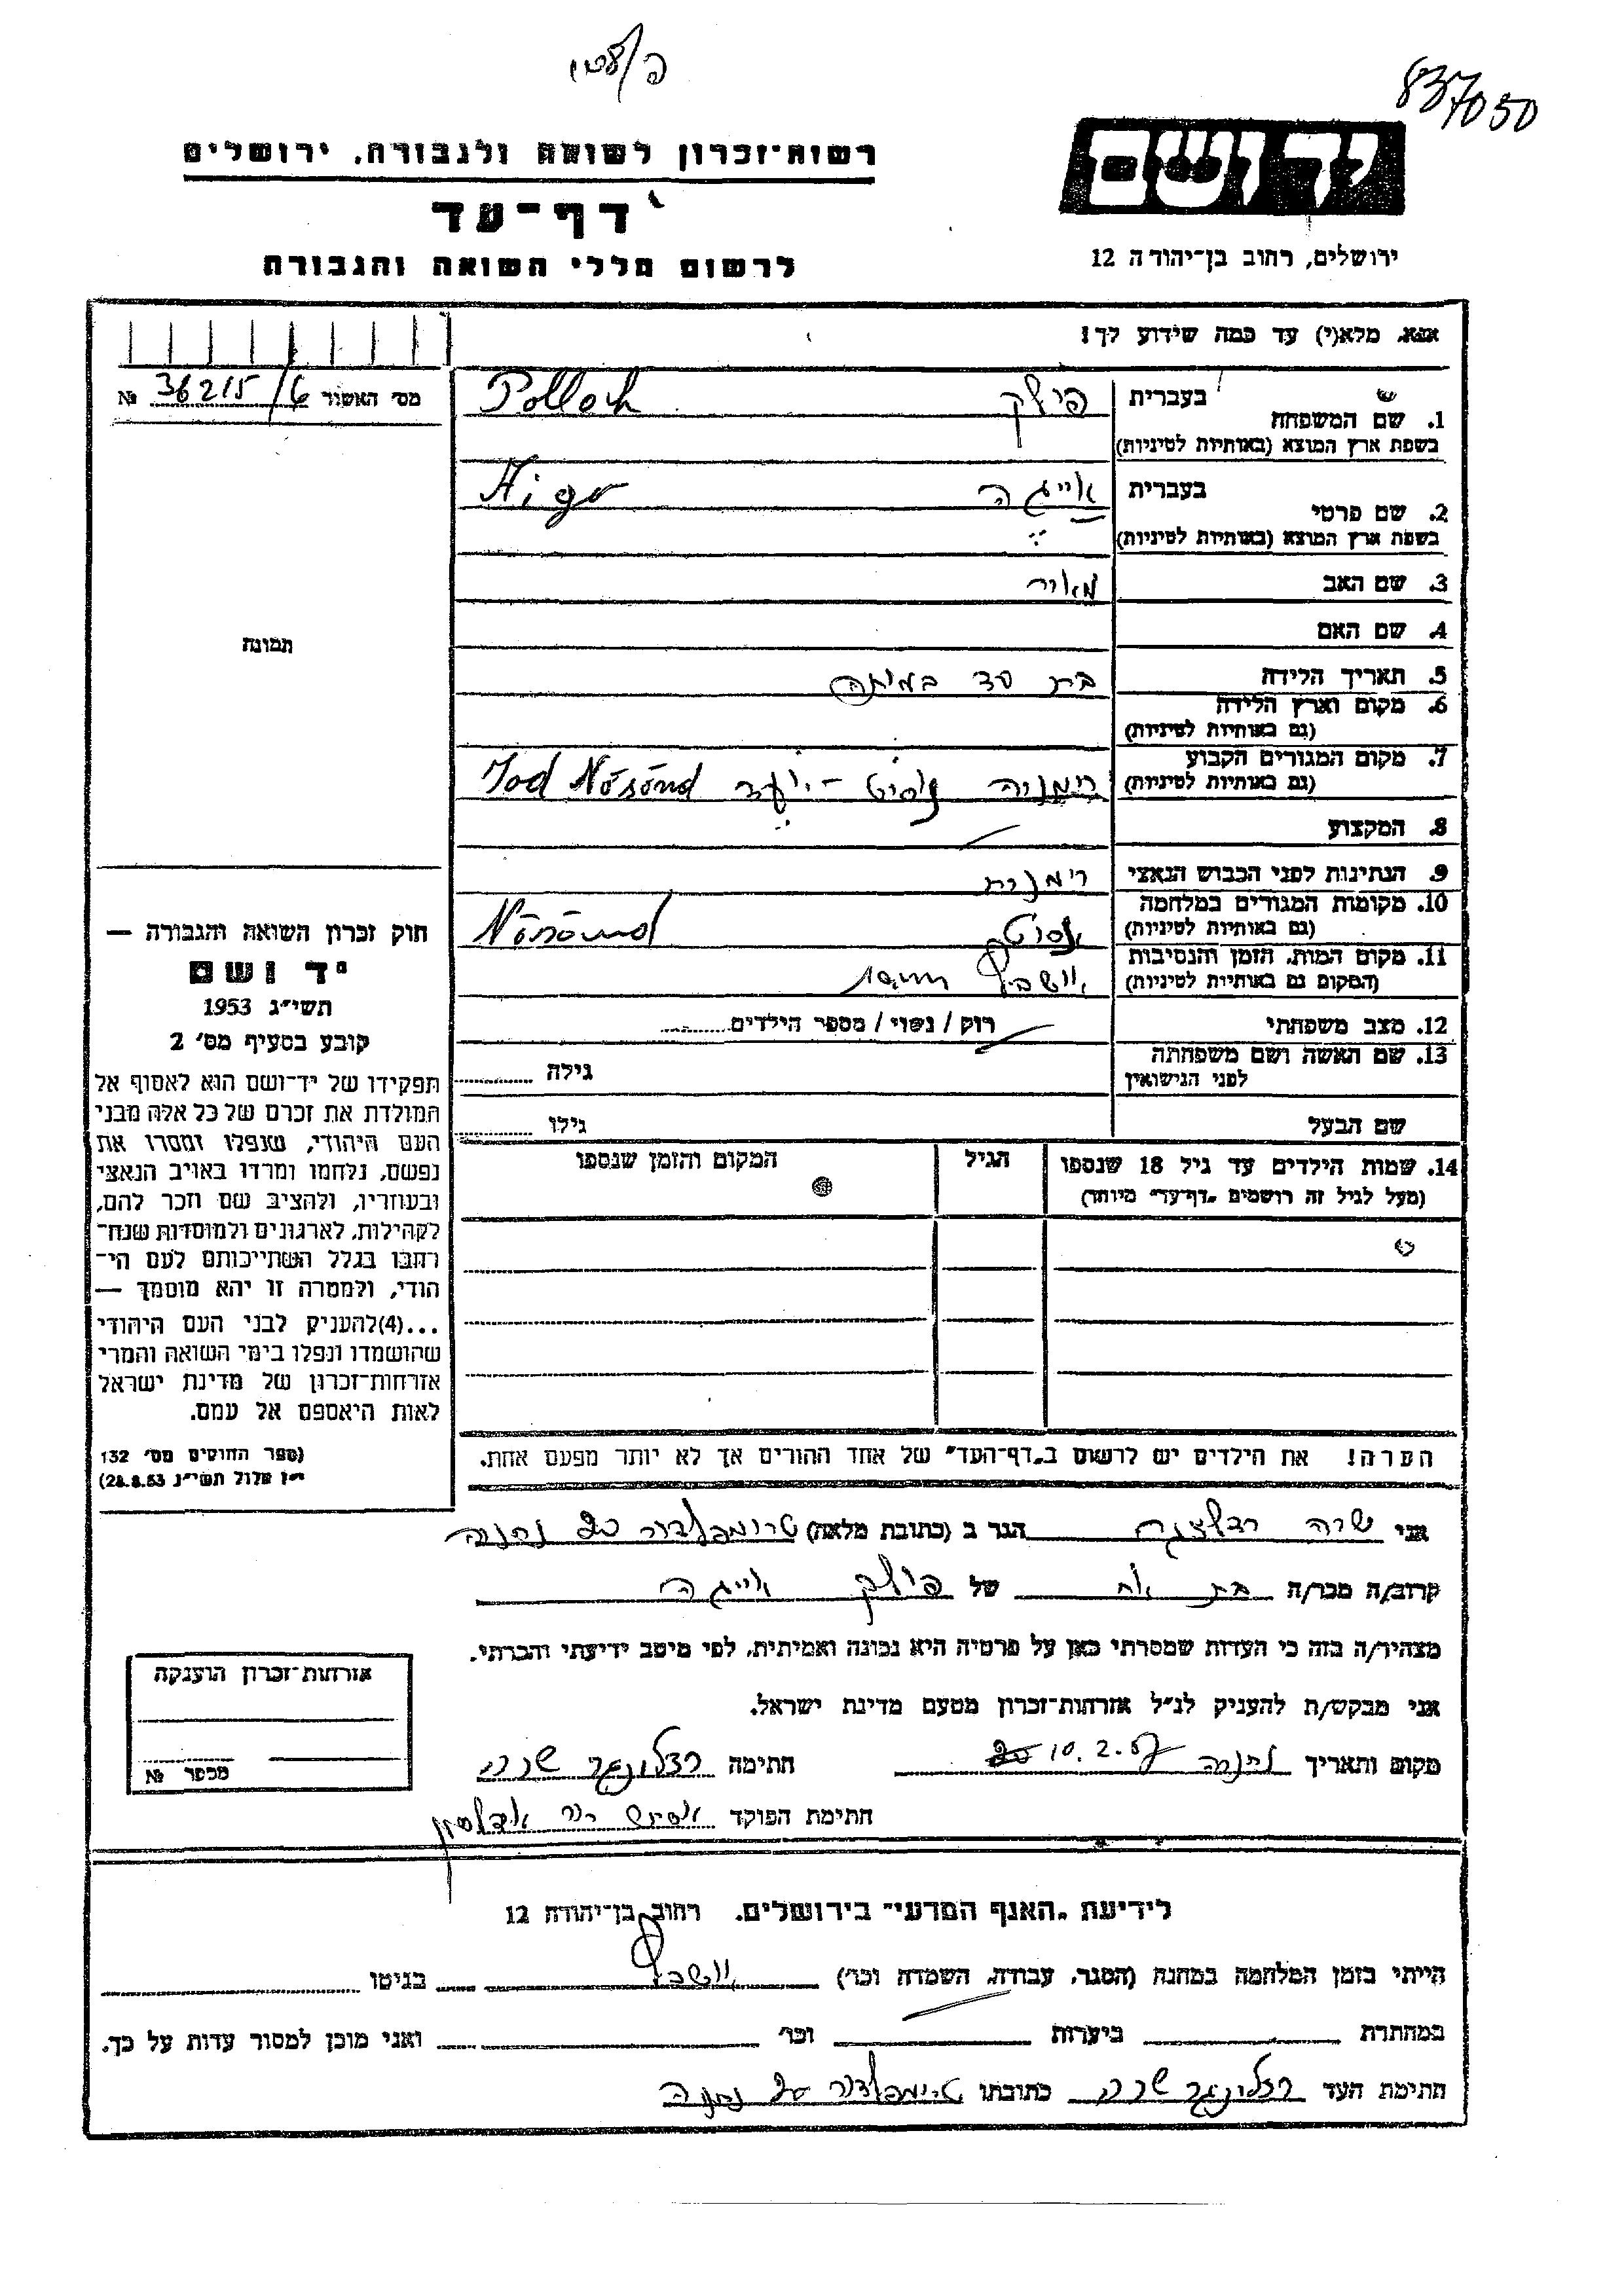 837050
רשות־זכרון לשואה ולגבורה, ירושלים
יד ושם
דף־עד
ירושלים, רחוב בן־יהודה 12
לרשום חללי השואה והגבורה
אנא, מלא(י) עד כמה שידוע לך!
מס׳ האשור 36215/6 №
בעברית פולק Pollock
1. שם המשפחה
בשפת ארץ המוצא (באותיות לטיניות)
בעברית אייגה
2. שם פרטי
בשפת ארץ המוצא (באותיות לטיניות)
3. שם האב מאיר
4. שם האם
תמונה
5. תאריך הלידה בת
6. מקום וארץ הלידה
(גם באותיות לטיניות)
7. מקום המגורים הקבוע
(גם באותיות לטיניות) רימניה Nösönd
8. המקצוע
9. הנתינות לפני הכבוש הנאצי רימנית
10. מקומות המגורים במלחמה
(גם באותיות לטיניות) Nösönd
11. מקום המות, הזמן והנסיבות
(המקום גם באותיות לטיניות) אושביץ
12. מצב משפחתי רוק / נשוי / מספר הילדים
13. שם האשה ושם משפחתה
לפני הנישואין גילה
שם הבעל גילו
חוק זכרון השואה והגבורה —
יד ושם
תשי״ג 1953
קובע בסעיף מס׳ 2
תפקידו של יד־ושם הוא לאסוף אל
המולדת את זכרם של כל אלה מבני
העם היהודי, שנפלו ומסרו את
נפשם, נלחמו ומרדו באויב הנאצי
ובעוזריו, ולהציב שם וזכר להם,
לקהילות, לארגונים ולמוסדות שנח־
רחבו בגלל השתייכותם לעם הי־
הודי, ולמטרה זו יהא מוסמך —
...(4)להעניק לבני העם היהודי
שהושמדו ונפלו בימי השואה והמרי
אזרחות־זכרון של מדינת ישראל
לאות היאספם אל עמם.
(ספר החוקים מס׳ 132
י״ז אלול תשי״ג 28.8.53)
14. שמות הילדים עד גיל 18 שנספו
(מעל לגיל זה רושמים „דף־עד״ מיוחד)
הגיל
המקום והזמן שנספו
הערה! את הילדים יש לרשום ב„דף־העד״ של אחד ההורים אך לא יותר מפעם אחת.
אני שרה הגר ב (כתובת מלאה) טרומפלדור נתניה
קרוב/ה מכר/ה בת אח של פולק אייגה
מצהיר/ה בזה כי העדות שמסרתי כאן על פרטיה היא נכונה ואמיתית, לפי מיטב ידיעתי והכרתי.
אני מבקש/ת להעניק לנ״ל אזרחות־זכרון מטעם מדינת ישראל.
מקום ותאריך נתניה 10.2.57 חתימה רצלינגר שרה
חתימת הפוקד
אזרחות־זכרון הוענקה
מכפר №
לידיעת „האגף המדעי״ בירושלים. רחוב בן־יהודה 12
הייתי בזמן המלחמה במחנה (הסגר, עבודה, השמדה וכו׳) אושביץ בגיטו
במחתרת ביערות וכו׳ ואני מוכן למסור עדות על כך.
חתימת העד רצלינגר שרה כתובתו טרומפלדור נתניה